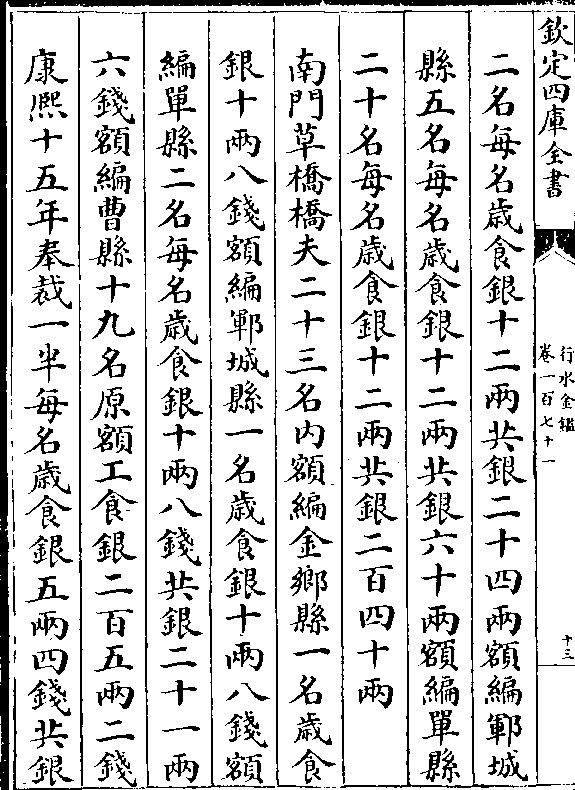 欽定四庫全書
行水金鑑
卷一百七十一
十三
二名每名歳食銀十二兩共銀二十四兩額編鄆城
縣五名每名歳食銀十二兩共銀六十兩額編單縣
二十名每名歳食銀十二兩共銀二百四十兩
南門草橋橋夫二十三名内額編金鄉縣一名歳食
銀十兩八錢額編鄆城縣一名歳食銀十兩八錢額
編單縣二名每名歳食銀十兩八錢共銀二十一兩
六錢額編曹縣十九名原額工食銀二百五兩二錢
康熈十五年奉裁一半每名歳食銀五兩四錢共銀